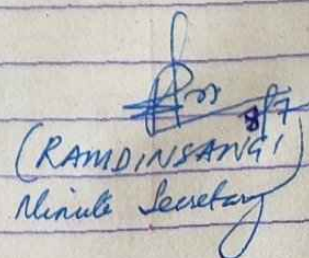 8/7
(RAMDINSANGI)
Minute Secretary